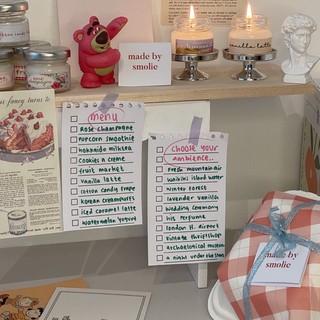 made by
smolie
vanilla latte
r fancy turns to
menu
Rose champagne
popcorn smoothie
hokkaido milktea
cookies n creme
fruit market
vanilla latte
cotton candy grape
korean creampuffs
iced caramel latte
watermelon yogurt
choose your
ambience..
fresh mountain air
waikiki island water
winter forest
lavender vanilla
wedding ceremony
his perfume
london H. airport
private thriftshop
archaelogical museum
a night under the stars
made by
smolie